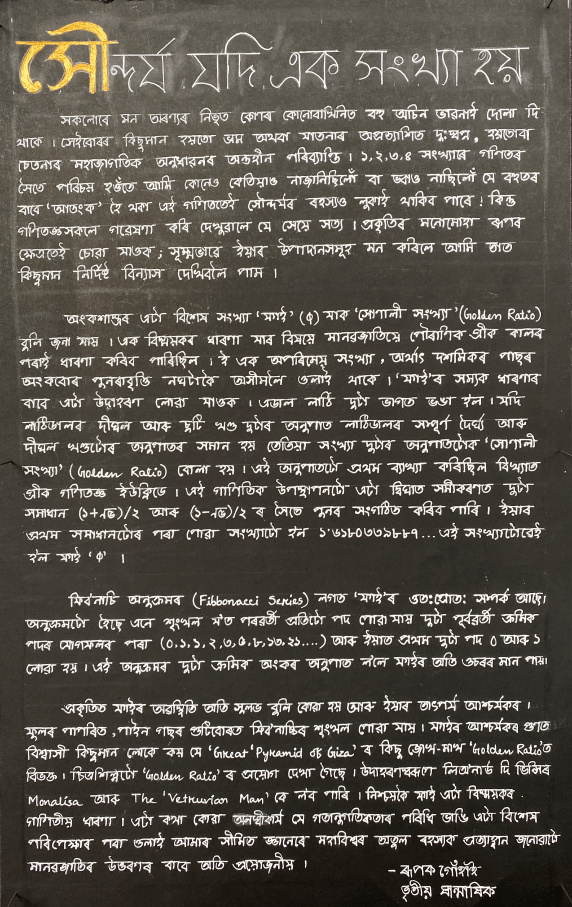 সৌন্দৰ্য যদি এক সংখ্যা হয়
সকলোৰে মন অৰণ্যৰ নিভৃত কোণৰ কোনোবাখিনিত বহু অচিন ভাৱনাই দোলা দি
থাকে। সেইবোৰৰ কিছুমান হয়তো ভ্ৰম অথবা যাতনাৰ অপ্ৰত্যাশিত দুঃস্বপ্ন, হয়তোবা
চেতনাৰ মহাজাগতিক অনুধাৱনৰ অন্তহীন পৰিব্যাপ্তি। ১,২,৩,৪ সংখ্যাৰে গণিতৰ
সৈতে পৰিচয় হওঁতে আমি কোনেও কেতিয়াও নাজানিছিলোঁ বা ভবাও নাছিলোঁ যে বহুতৰ
বাবে 'আতংক' হৈ থকা এই গণিততেই সৌন্দৰ্যৰ ৰহস্যও লুকাই থাকিব পাৰে! কিন্তু
গণিতজ্ঞসকলে গৱেষণা কৰি দেখুৱালে যে সেয়ে সত্য। প্ৰকৃতিৰ মনোমোহা ৰূপৰ
ক্ষেত্ৰতেই চোৱা যাওক; সূক্ষ্মভাৱে ইয়াৰ উপাদানসমূহ মন কৰিলে আমি তাত
কিছুমান নিৰ্দিষ্ট বিন্যাস দেখিবলৈ পাম।
অংকশাস্ত্ৰৰ এটা বিশেষ সংখ্যা 'ফাই' (φ) যাক 'সোণালী সংখ্যা' (Golden Ratio)
বুলি জনা যায়। এক বিস্ময়কৰ ধাৰণা যাৰ বিষয়ে মানৱজাতিয়ে পৌৰাণিক গ্ৰীক কালৰ
পৰাই ধাৰণা কৰিব পাৰিছিল। ই এক অপৰিমেয় সংখ্যা, অৰ্থাৎ দশমিকৰ পাছৰ
অংকবোৰ পুনৰাবৃত্তি নঘটাকৈ অসীমলৈ ওলাই থাকে। 'ফাই'ৰ সম্যক ধাৰণাৰ
বাবে এটা উদাহৰণ লোৱা যাওক। এডাল লাঠি দুটা ভাগত ভঙা হ'ল। যদি
লাঠিডালৰ দীঘল আৰু চুটি খণ্ড দুটাৰ অনুপাত লাঠিডালৰ সম্পূৰ্ণ দৈৰ্ঘ্য আৰু
দীঘল খণ্ডটোৰ অনুপাতৰ সমান হয় তেতিয়া সংখ্যা দুটাৰ অনুপাতটোক 'সোণালী
সংখ্যা' (Golden Ratio) বোলা হয়। এই অনুপাতটো প্ৰথম ব্যাখ্যা কৰিছিল বিখ্যাত
গ্ৰীক গণিতজ্ঞ ইউক্লিডে। এই গাণিতিক উপস্থাপনটো এটা দ্বিঘাত সমীকৰণত দুটা
সমাধান (১+√৫)/২ আৰু (১-√৫)/২ ৰ সৈতে পুনৰ সংগঠিত কৰিব পাৰি। ইয়াৰ
প্ৰথম সমাধানটোৰ পৰা পোৱা সংখ্যাটো হ'ল ১·৬১৮০৩৩৯৮৮৭... এই সংখ্যাটোৱেই
হ'ল ফাই 'φ'।
ফিব'নাচি অনুক্ৰমৰ (Fibbonacci Series) লগত 'ফাই'ৰ ওতঃপ্ৰোতঃ সম্পৰ্ক আছে।
অনুক্ৰমটো হৈছে এনে শৃংখল য'ত পৰৱৰ্তী প্ৰতিটো পদ পোৱা যায় দুটা পূৰ্বৱৰ্তী ক্ৰমিক
পদৰ যোগফলৰ পৰা (০,১,১,২,৩,৫,৮,১৩,২১....) আৰু ইয়াত প্ৰথম দুটা পদ ০ আৰু ১
লোৱা হয়। এই অনুক্ৰমৰ দুটা ক্ৰমিক অংকৰ অনুপাত ল'লে ফাইৰ অতি ওচৰৰ মান পায়।
প্ৰকৃতিত ফাইৰ অৱস্থিতি অতি সুলভ বুলি কোৱা হয় আৰু ইয়াৰ তাৎপৰ্য আশ্চৰ্যকৰ।
ফুলৰ পাপৰিত, পাইন গছৰ গুটিবোৰত ফিব'নাচ্চিৰ শৃংখল পোৱা যায়। ফাইৰ আশ্চৰ্যকৰ গুণত
বিশ্বাসী কিছুমান লোকে কয় যে 'Great Pyramid of Giza' ৰ কিছু জোখ-মাখ 'Golden Ratio'ত
বিভক্ত। চিত্ৰশিল্পটো 'Golden Ratio' ৰ প্ৰয়োগ দেখা গৈছে। উদাহৰণস্বৰূপে লিঅ'নাৰ্ড দি ভিন্সিৰ
Monalisa আৰু The 'Vetruvian Man' কে ল'ব পাৰি। নিশ্চয়কৈ ফাই এটা বিস্ময়কৰ
গাণিতীয় ধাৰণা। এটা কথা কোৱা অনস্বীকাৰ্য যে গতানুগতিকতাৰ পৰিধি ভাঙি এটা বিশেষ
পৰিপ্ৰেক্ষাৰ পৰা ওলাই আমাৰ সীমিত জ্ঞানেৰে মহাবিশ্বৰ অতুল ৰহস্যক প্ৰত্যাহ্বান জনোৱাটো
মানৱজাতিৰ উত্তৰণৰ বাবে অতি প্ৰয়োজনীয়।
- ৰূপক গোঁহাই
তৃতীয় ষাণ্মাষিক